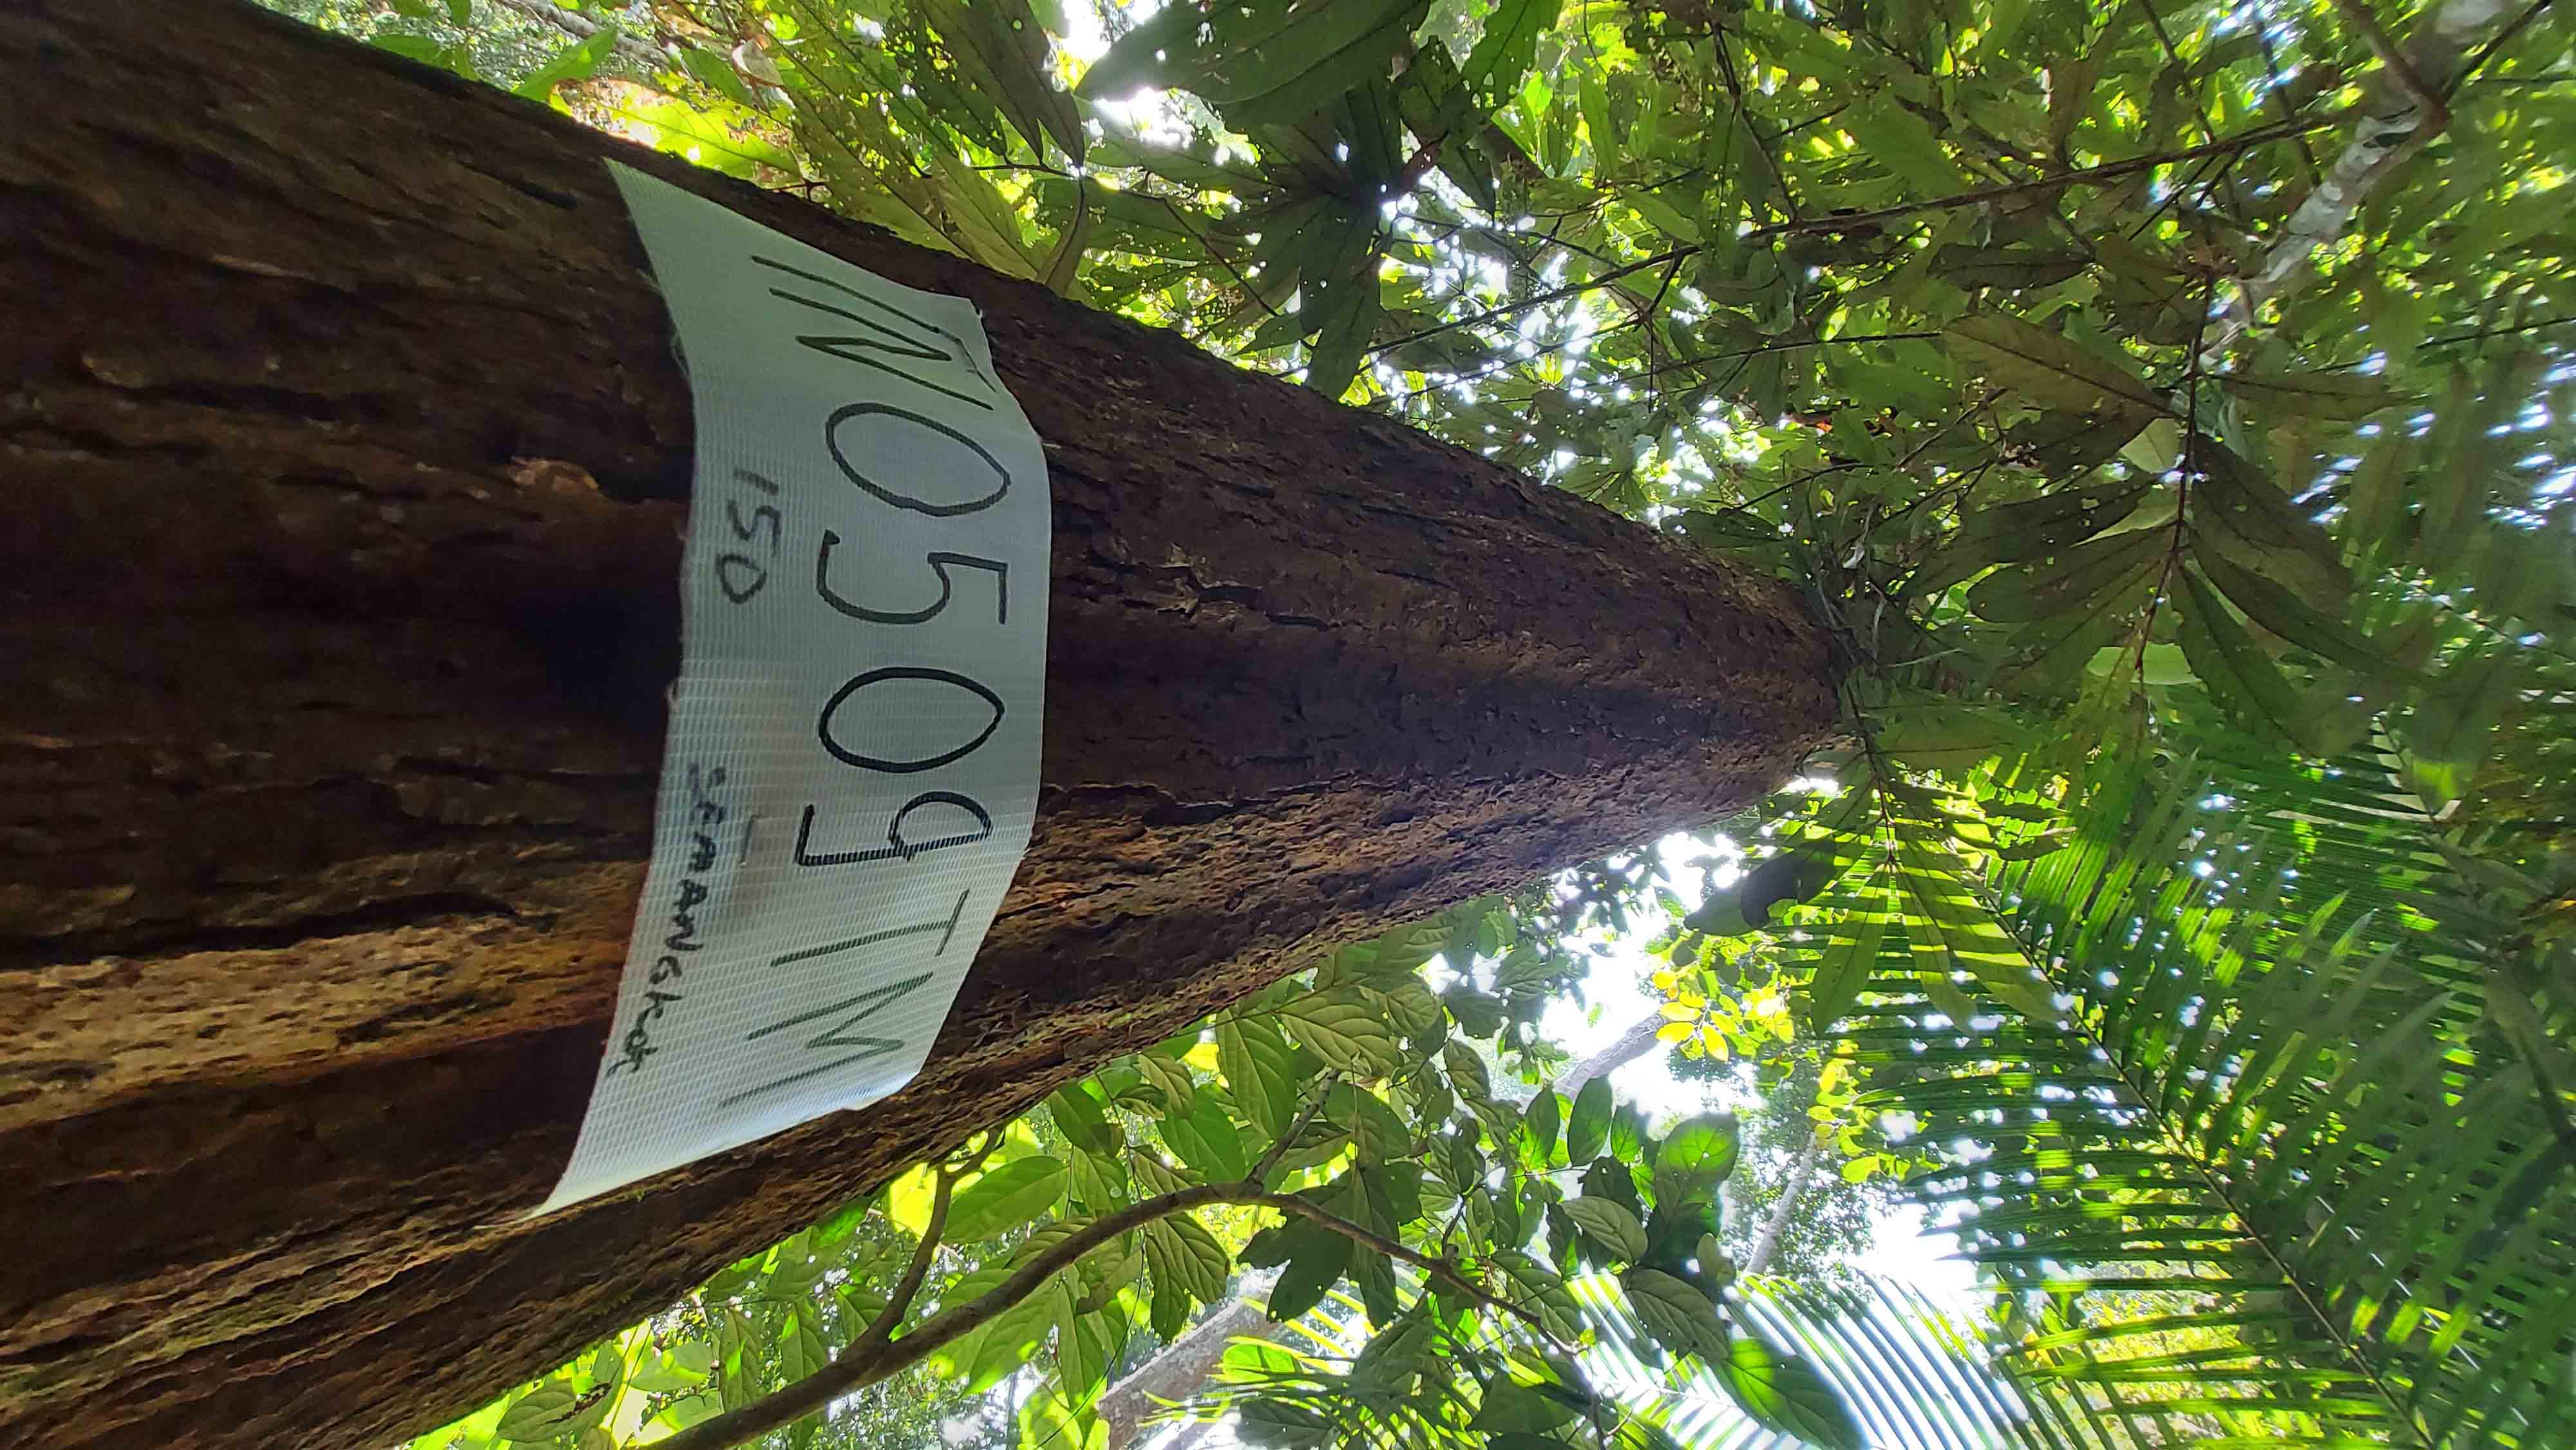 IN0509TM
150 SEMANGKOK